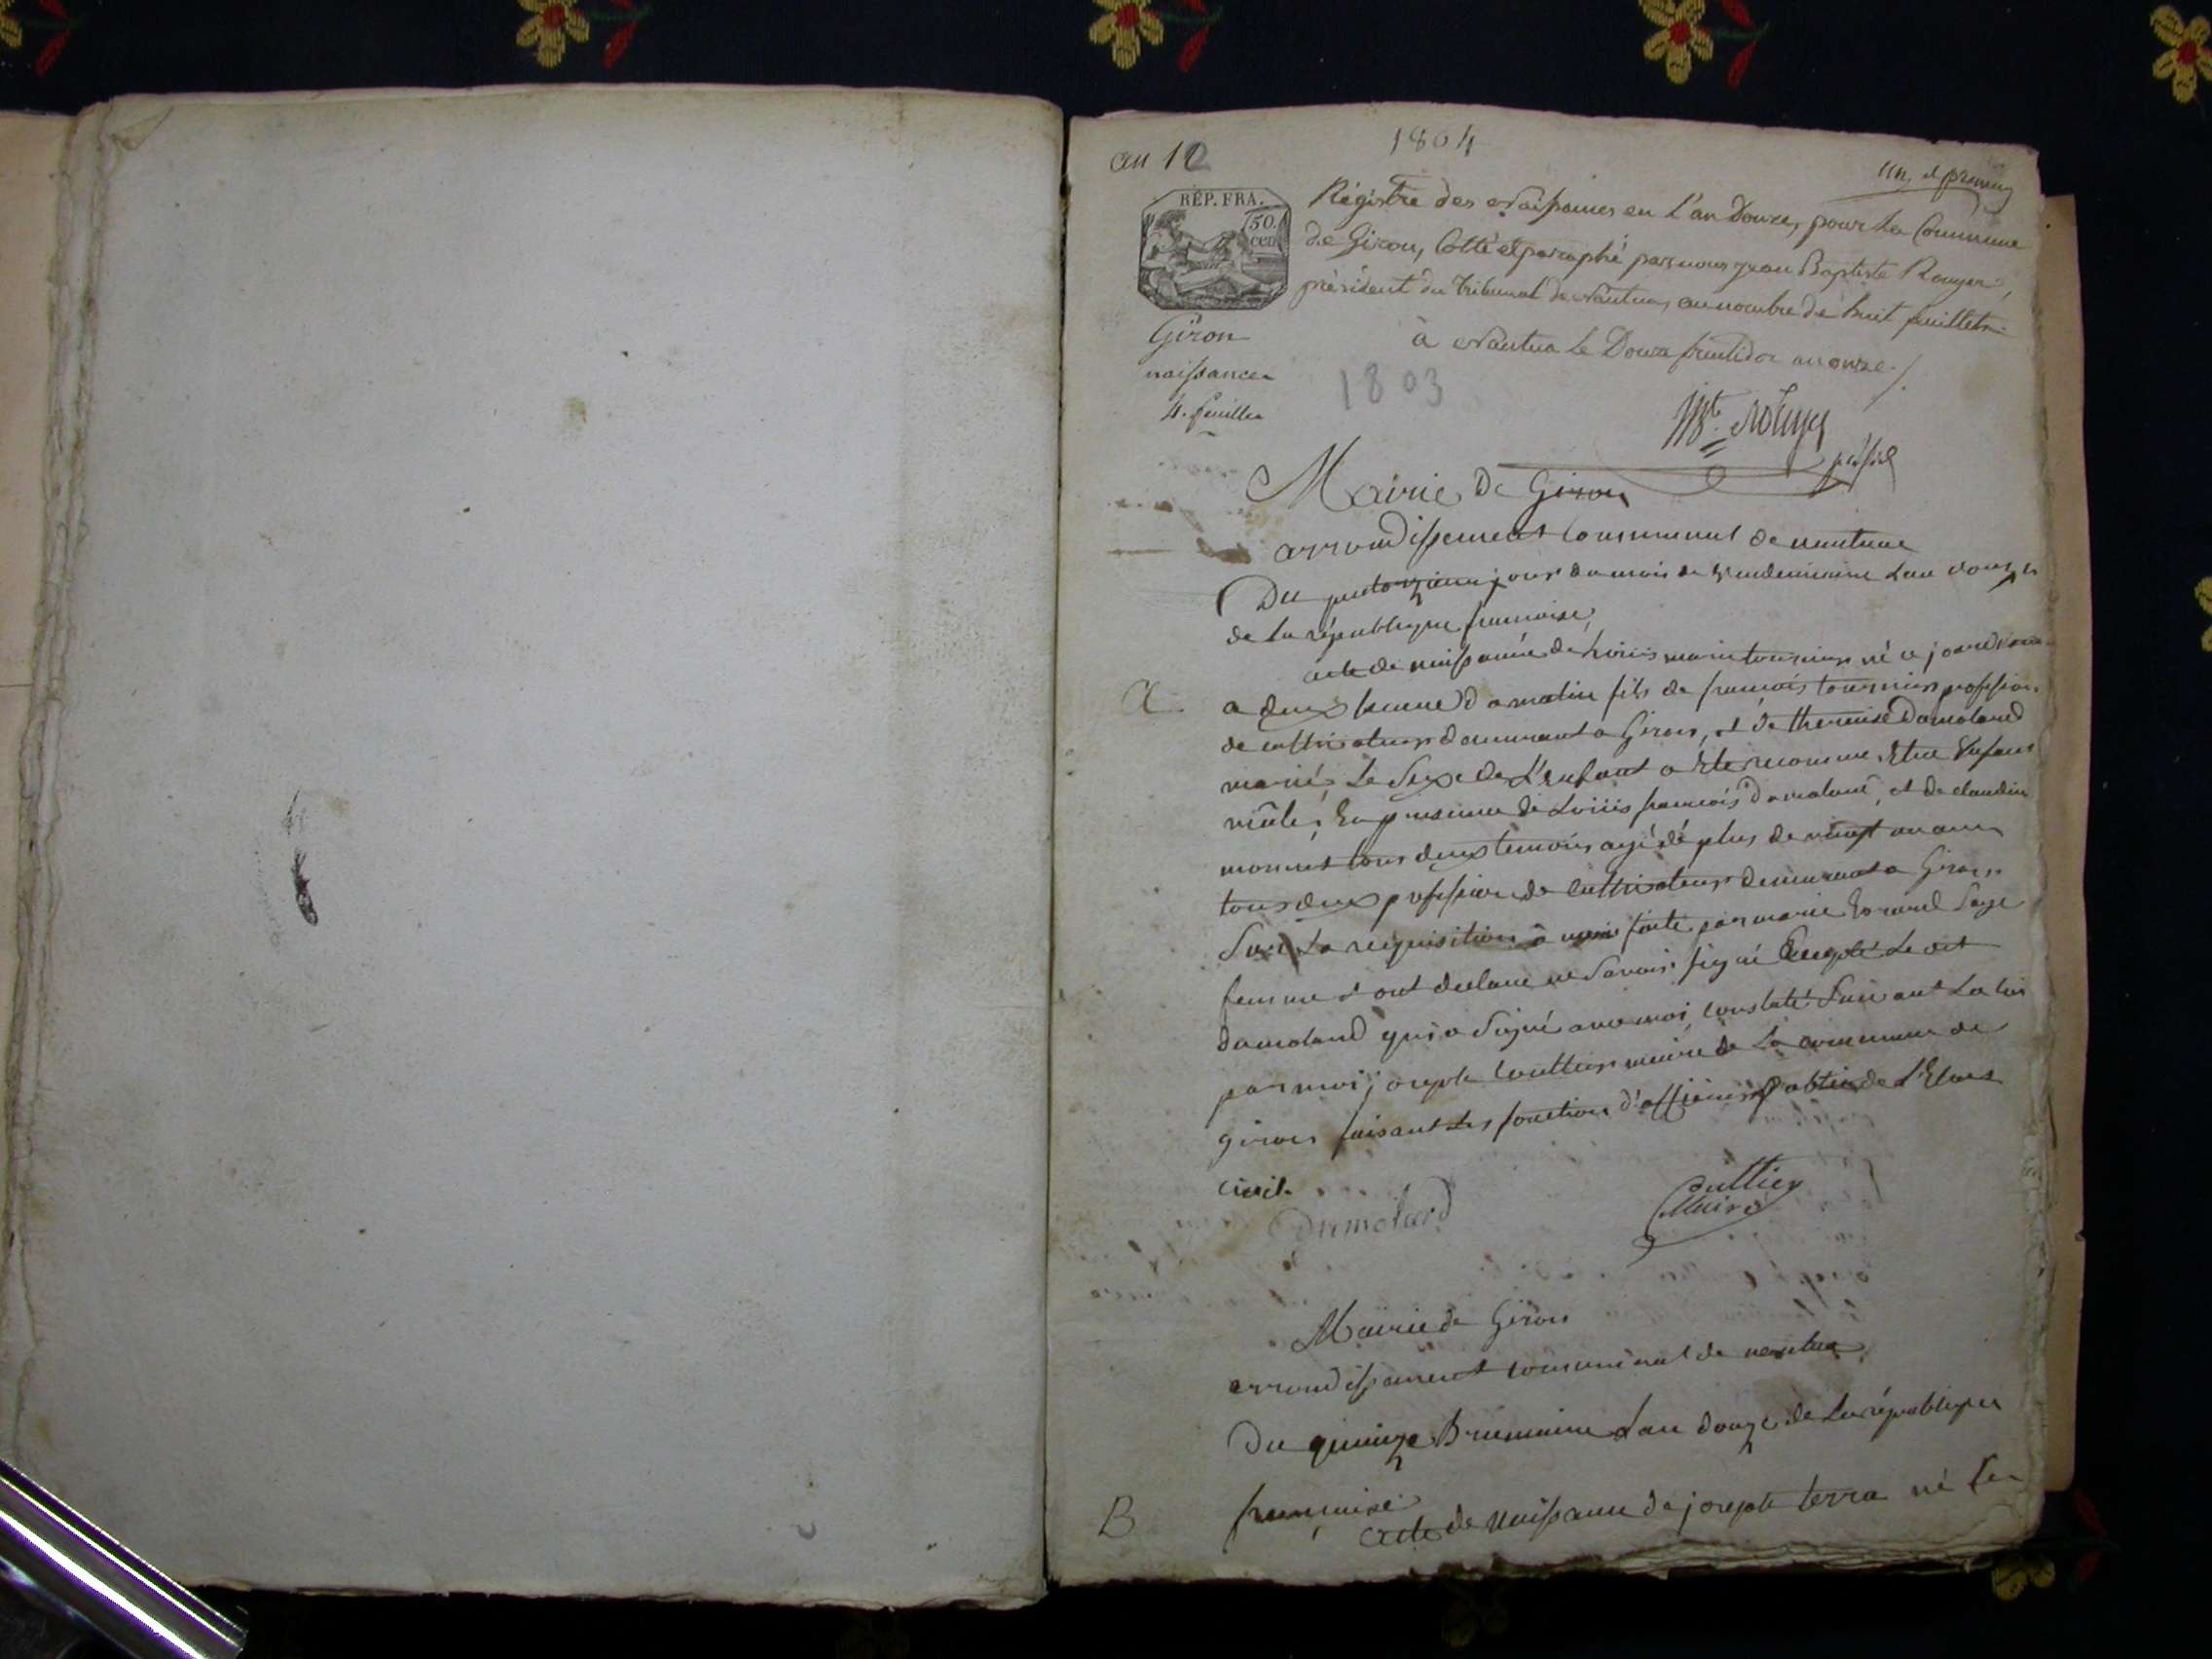 an 12
1804
un et premier
RÉP. FRA.
50.
cen
Régistre des Naissances en L'an Douze, pour la Commune
de Giron, Cotté et paraphé par nous jean Baptiste Rouyer,
président du tribunal de Nantua, au nombre de huit feuillets
à Nantua le Douze fructidor an onze ./.
Giron
naissances
4. feuilles
1803
Mairie de Giron
arrondissement communal de nantua
Du quatorzieme jour du mois de vendemiaire L'an douze
de la république francaise,
acte de naissance de Louis marie tournier né ce jourdhui
a
a deux heures d matin fils de francois tournier profession
de cultivateur demeurant a Giron, et de theraise Damoland
marié, Le Sexe de L'enfant a été reconnue Etre Enfans
mâle, En presence de Louis francois Damoland, et de claudin
tous deux temoin agé dé plus de vingt un ans
tous deux profession de cultivateur demeurant a Giron
Sur La requisition a moi faite par marie Sage
femme et ont declaré ne Savoir signé Excepté Le dit
Damoland qui a Signé avec moi, constaté Suivant La loi
par moi joseph couttier maire de La commune de
giron faisant les fonction d'officier Public de L'Etat
civil.
Dumolard
Couttier
Maire
Mairie de Giron
arrondissement communal de nantua
Du quinze Brumaire L'an douze de La république
B
française
acte de Naissance de joseph terra né le